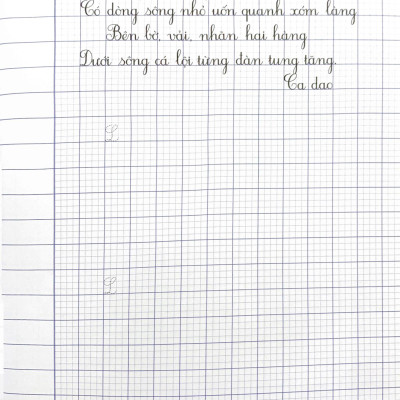 Có dòng sông nhỏ uốn quanh xóm làng
Bên bờ, vải, nhãn hai hàng
Dưới sông cá lội từng đàn tung tăng.
Ca dao
L
L